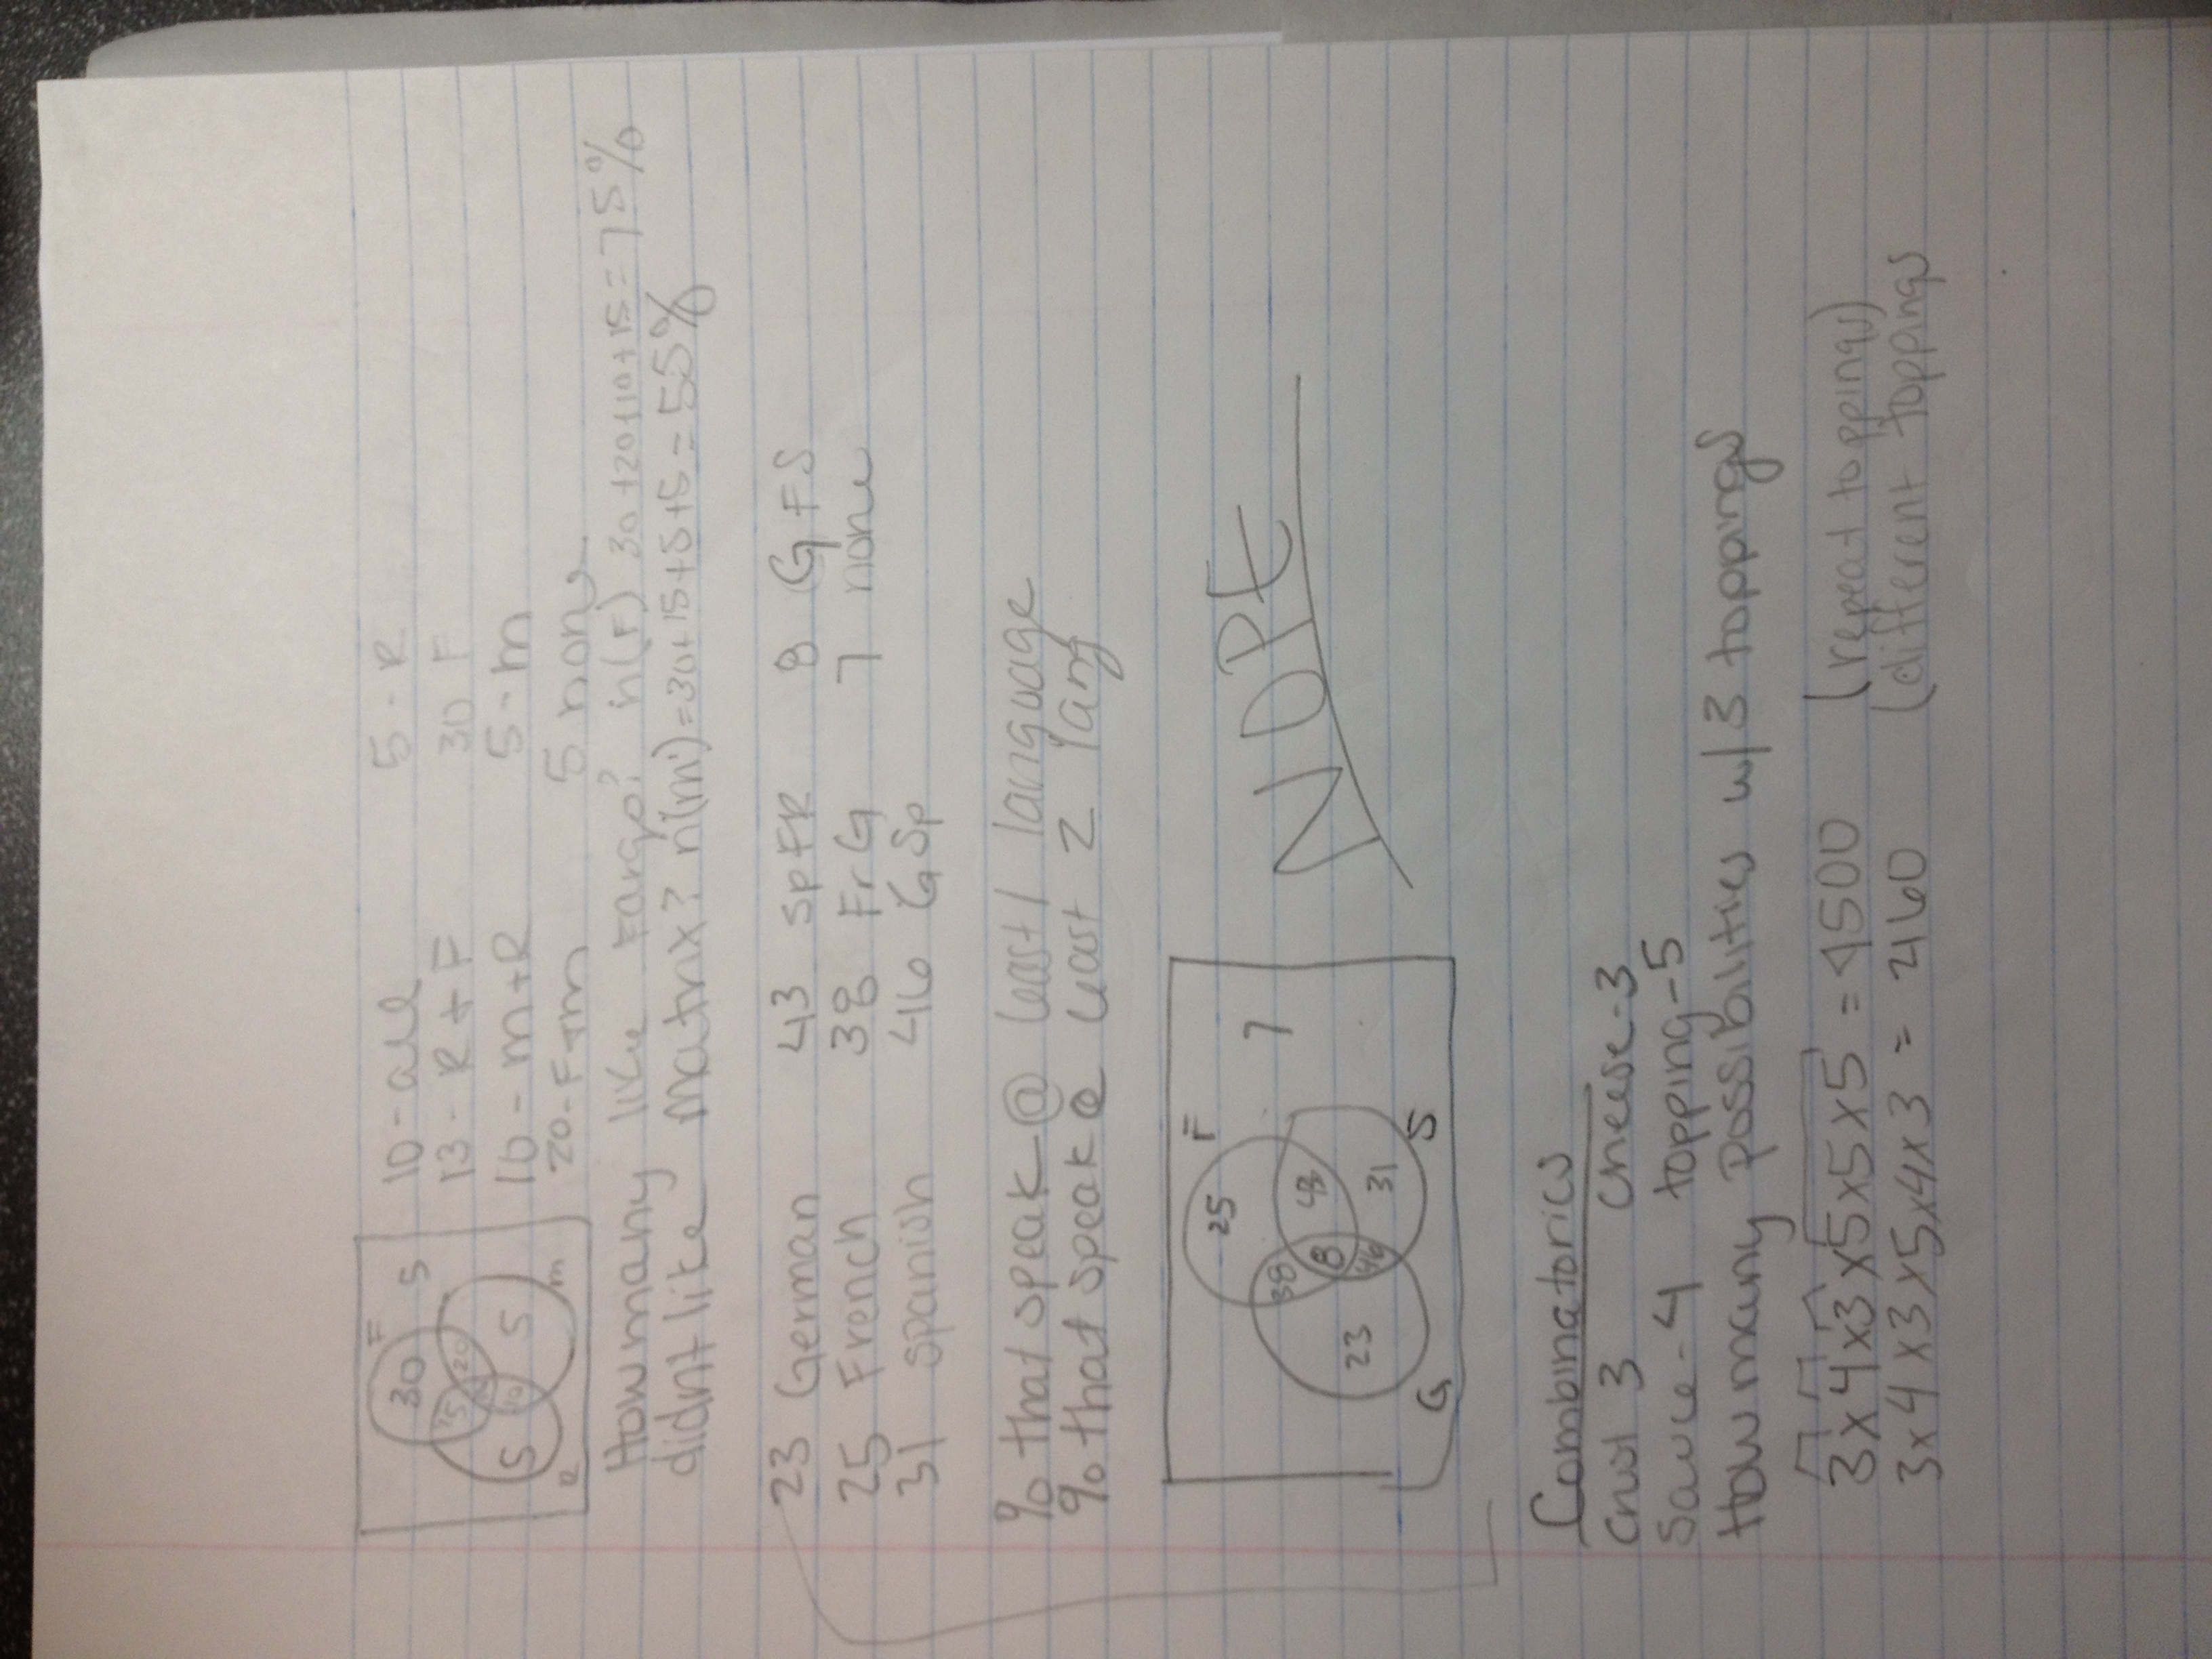 F
30
5
15 10 20
5 10 5
R m
10 - all 5 - R
13 - R + F 30 F
10 - m + R 5 - m
20 - F + m 5 none
How many like Fargo? n(F) 30+20+10+15=75%
didnt like matrix? n(m')=30+15+5+5=55%
23 German 43 SpFR 8 GFS
25 French 38 FrG 7 none
31 spanish 46 GSp
% that speak @ least 1 language
% that speak @ least 2 lang
F
25 7
38 43
8
23 46 31
G S
NOPE
Combinatorics
crust 3 cheese-3
Sauce-4 topping-5
How many possibilities w/ 3 toppings
3x4x3x5x5x5 = 4500 (repeat toppings)
3x4x3x5x4x3 = 2160 (different toppings